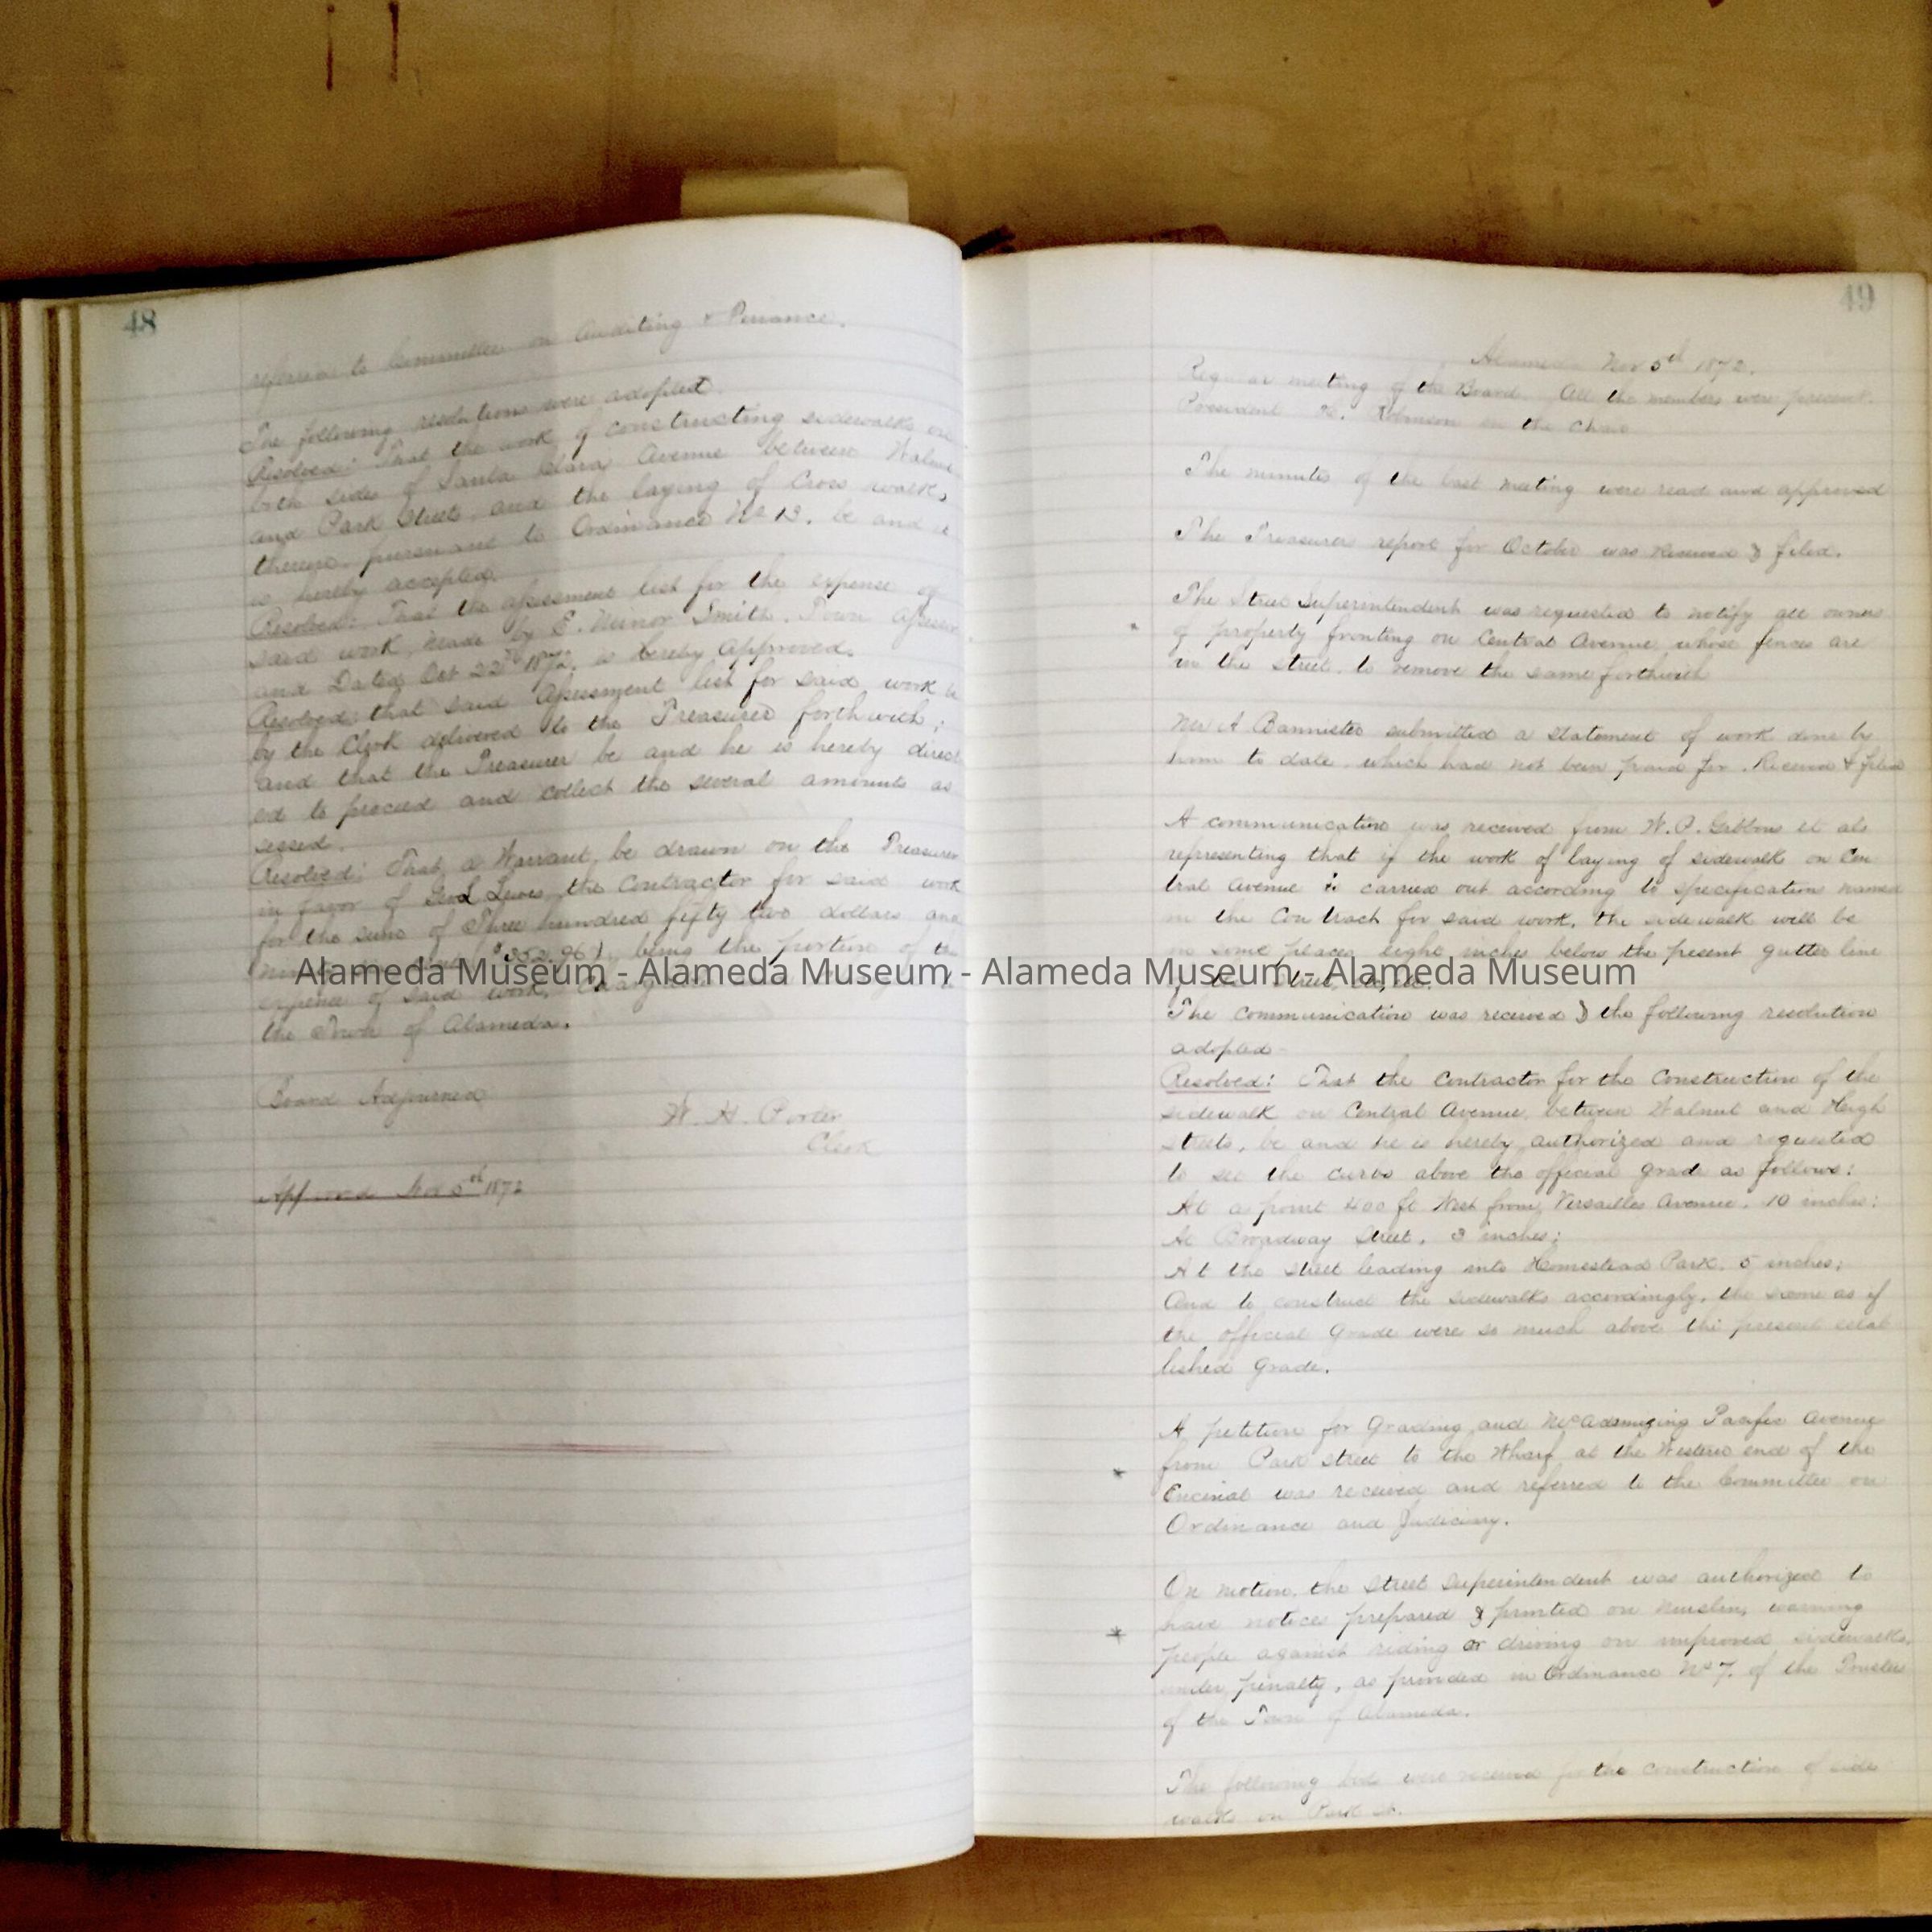 48
referred to Committee on Auditing & Finance.
The following resolutions were adopted.
Resolved: That the work of constructing sidewalks on
both sides of Santa Clara Avenue between Walnut
and Park Streets, and the laying of Cross walks
thereon, pursuant to Ordinance No 13. be and it
is hereby accepted.
Resolved: That the assessment list for the expense of
said work, made by E. Minor Smith. Town Assessor
and Dated Oct 22nd 1872. is hereby Approved.
Resolved: that said Assessment list for said work be
by the Clerk delivered to the Treasurer forthwith;
and that the Treasurer be and he is hereby direct
ed to proceed and collect the several amounts as
sessed.
Resolved: That a Warrant, be drawn on the Treasurer
in favor of Lewis, the Contractor for said work
for the sum of Three hundred fifty two dollars and
$352.96) being the portion of the
expense of said work,
the Town of Alameda.
Board Adjourned
W. H. Porter
Clerk
Approved Nov 5th 1872
49
Alameda Nov 5th 1872.
Regular meeting of the Board. All the members were present.
President H. Robinson in the Chair
The minutes of the last meeting were read and approved
The Treasurer report for October was Received & filed.
The Street Superintendent was requested to notify all owners
of property fronting on Central Avenue, whose fences are
in the street. to remove the same forthwith
Mr A Bannister submitted a statement of work done by
him to date. which had not been paid for. Received & filed
A communication was received from W. P. Gibbons et als
representing that if the work of laying of sidewalk on Cen
tral Avenue is carried out according to specification named
in the Contract for said work, the sidewalk will be
in some places eight inches below the present gutter line
of the Street, etc, etc.
The communication was received & the following resolution
adopted-
Resolved: That the Contractor for the Construction of the
sidewalk on Central Avenue, between Walnut and High
streets, be and he is hereby authorized and requested
to set the curbs above the official grade as follows:
At a point 400 ft West from Versailles Avenue. 10 inches:
At Broadway Street, 3 inches;
At the street leading into Homestead Park. 5 inches;
And to construct the sidewalks accordingly, the same as if
the official grade were so much above the present estab
lished grade.
A petition for Grading and McAdamizing Pacific Avenue
from Park street to the Wharf at the Western end of the
Encinal was received and referred to the Committee on
Ordinance and Judiciary.
On motion, the Street Superintendent was authorized to
have notices prepared & printed on Muslin, warning
people against riding or driving on improved sidewalks,
under penalty, as provided in Ordinance No 7. of the Trustees
of the Town of Alameda.
The following bids were received for the construction of side
walks on Park St.
Alameda Museum - Alameda Museum - Alameda Museum - Alameda Museum